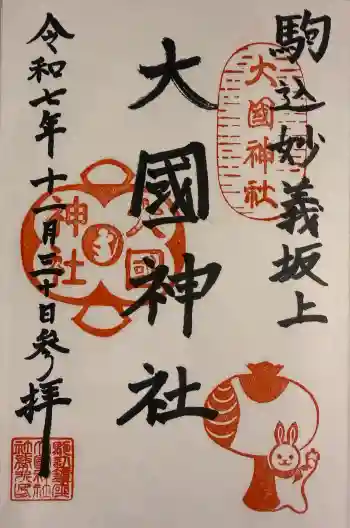 駒込妙義坂上
大國神社
大國神社
大國神社
令和七年十一月三十日参拝